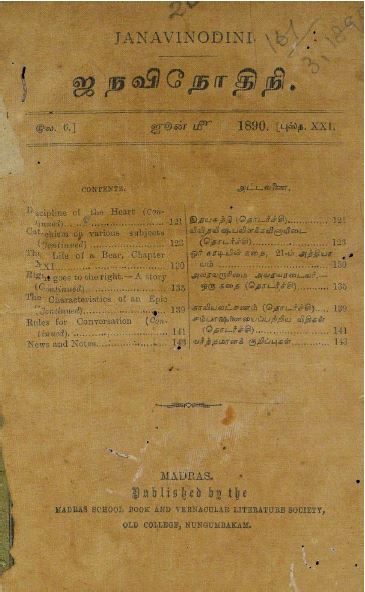 JANAVINODINI.
ஜநவிநோதினி.
இல. 6.] ஜூன் மீ 1890. [புஸ்த. XXI.
CONTENTS.
Discipline of the Heart (Con-
tinued) 121
Catechism of various subjects
(Continued) 123
The Life of a Bear, Chapter
XXI. 130
Right goes to the right.—A story
(Continued) 135
The Characteristics of an Epic
(Continued) 139
Rules for Conversation (Con-
tinued). 141
News and Notes. 143
அட்டவணை.
இதயசுத்தி (தொடர்ச்சி) 121
(தொடர்ச்சி) 123
ஓர் கரடியின் கதை, 21-ம் அத்தியா
யம் 130
ஒரு கதை (தொடர்ச்சி) 135
காவியலட்சணம் (தொடர்ச்சி) 139
சம்பாஷணையைப்பற்றிய விதிகள்
(தொடர்ச்சி) 141
வர்த்தமானக் குறிப்புகள் 143
MADRAS.
Published by the
MADRAS SCHOOL BOOK AND VERNACULAR LITERATURE SOCIETY,
OLD COLLEGE, NUNGUMBAKAM.